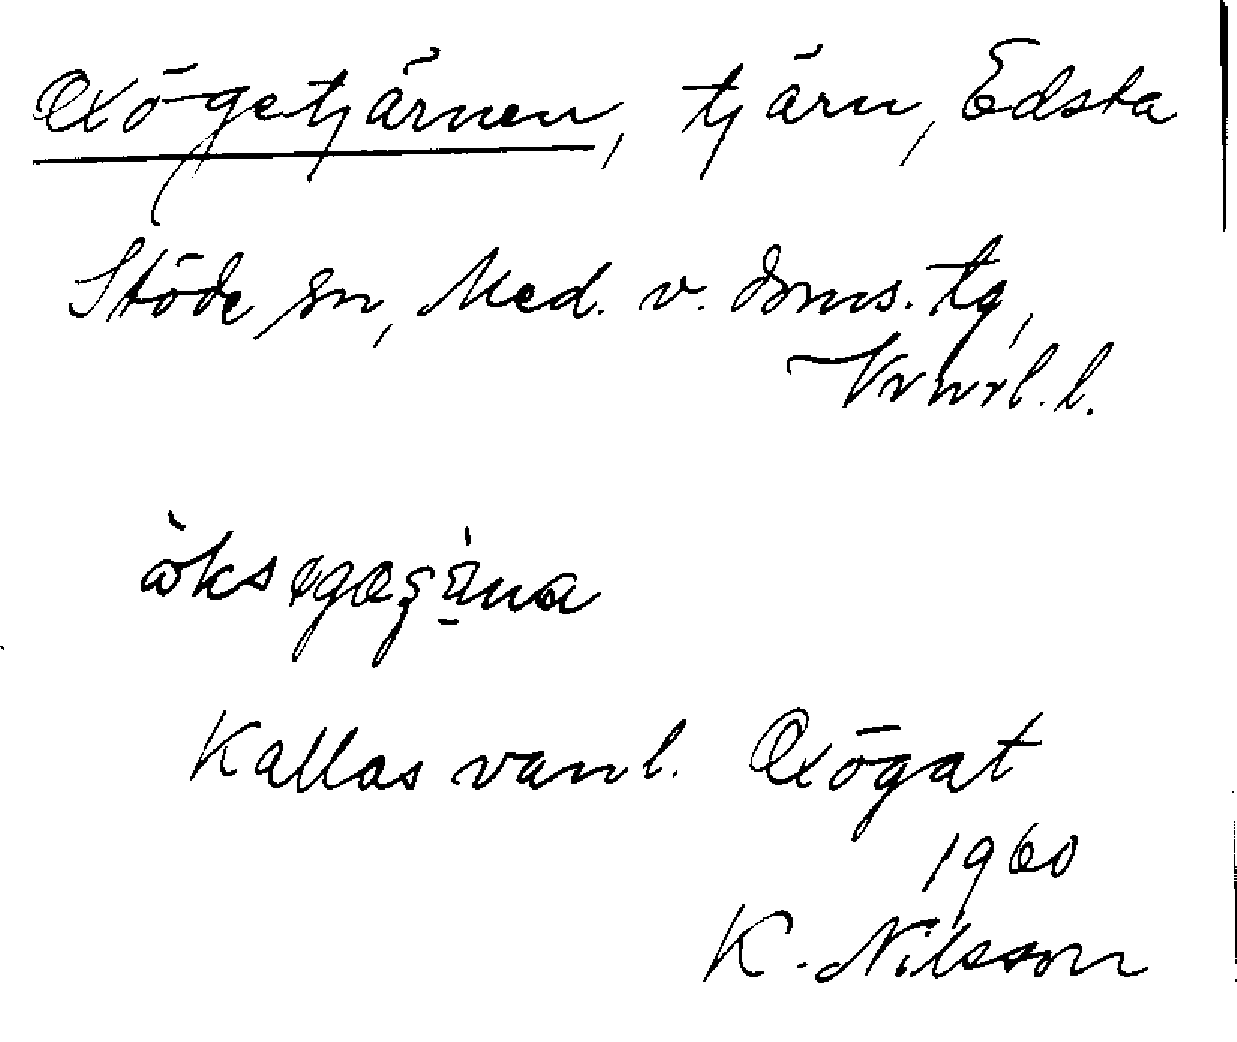 Oxögetjärnen, tjärn, Edsta
Stöde sn, Med. v. doms. tg,
Vrnrl. l.
Kallas vanl. Oxögat
1960
K. Nilsson